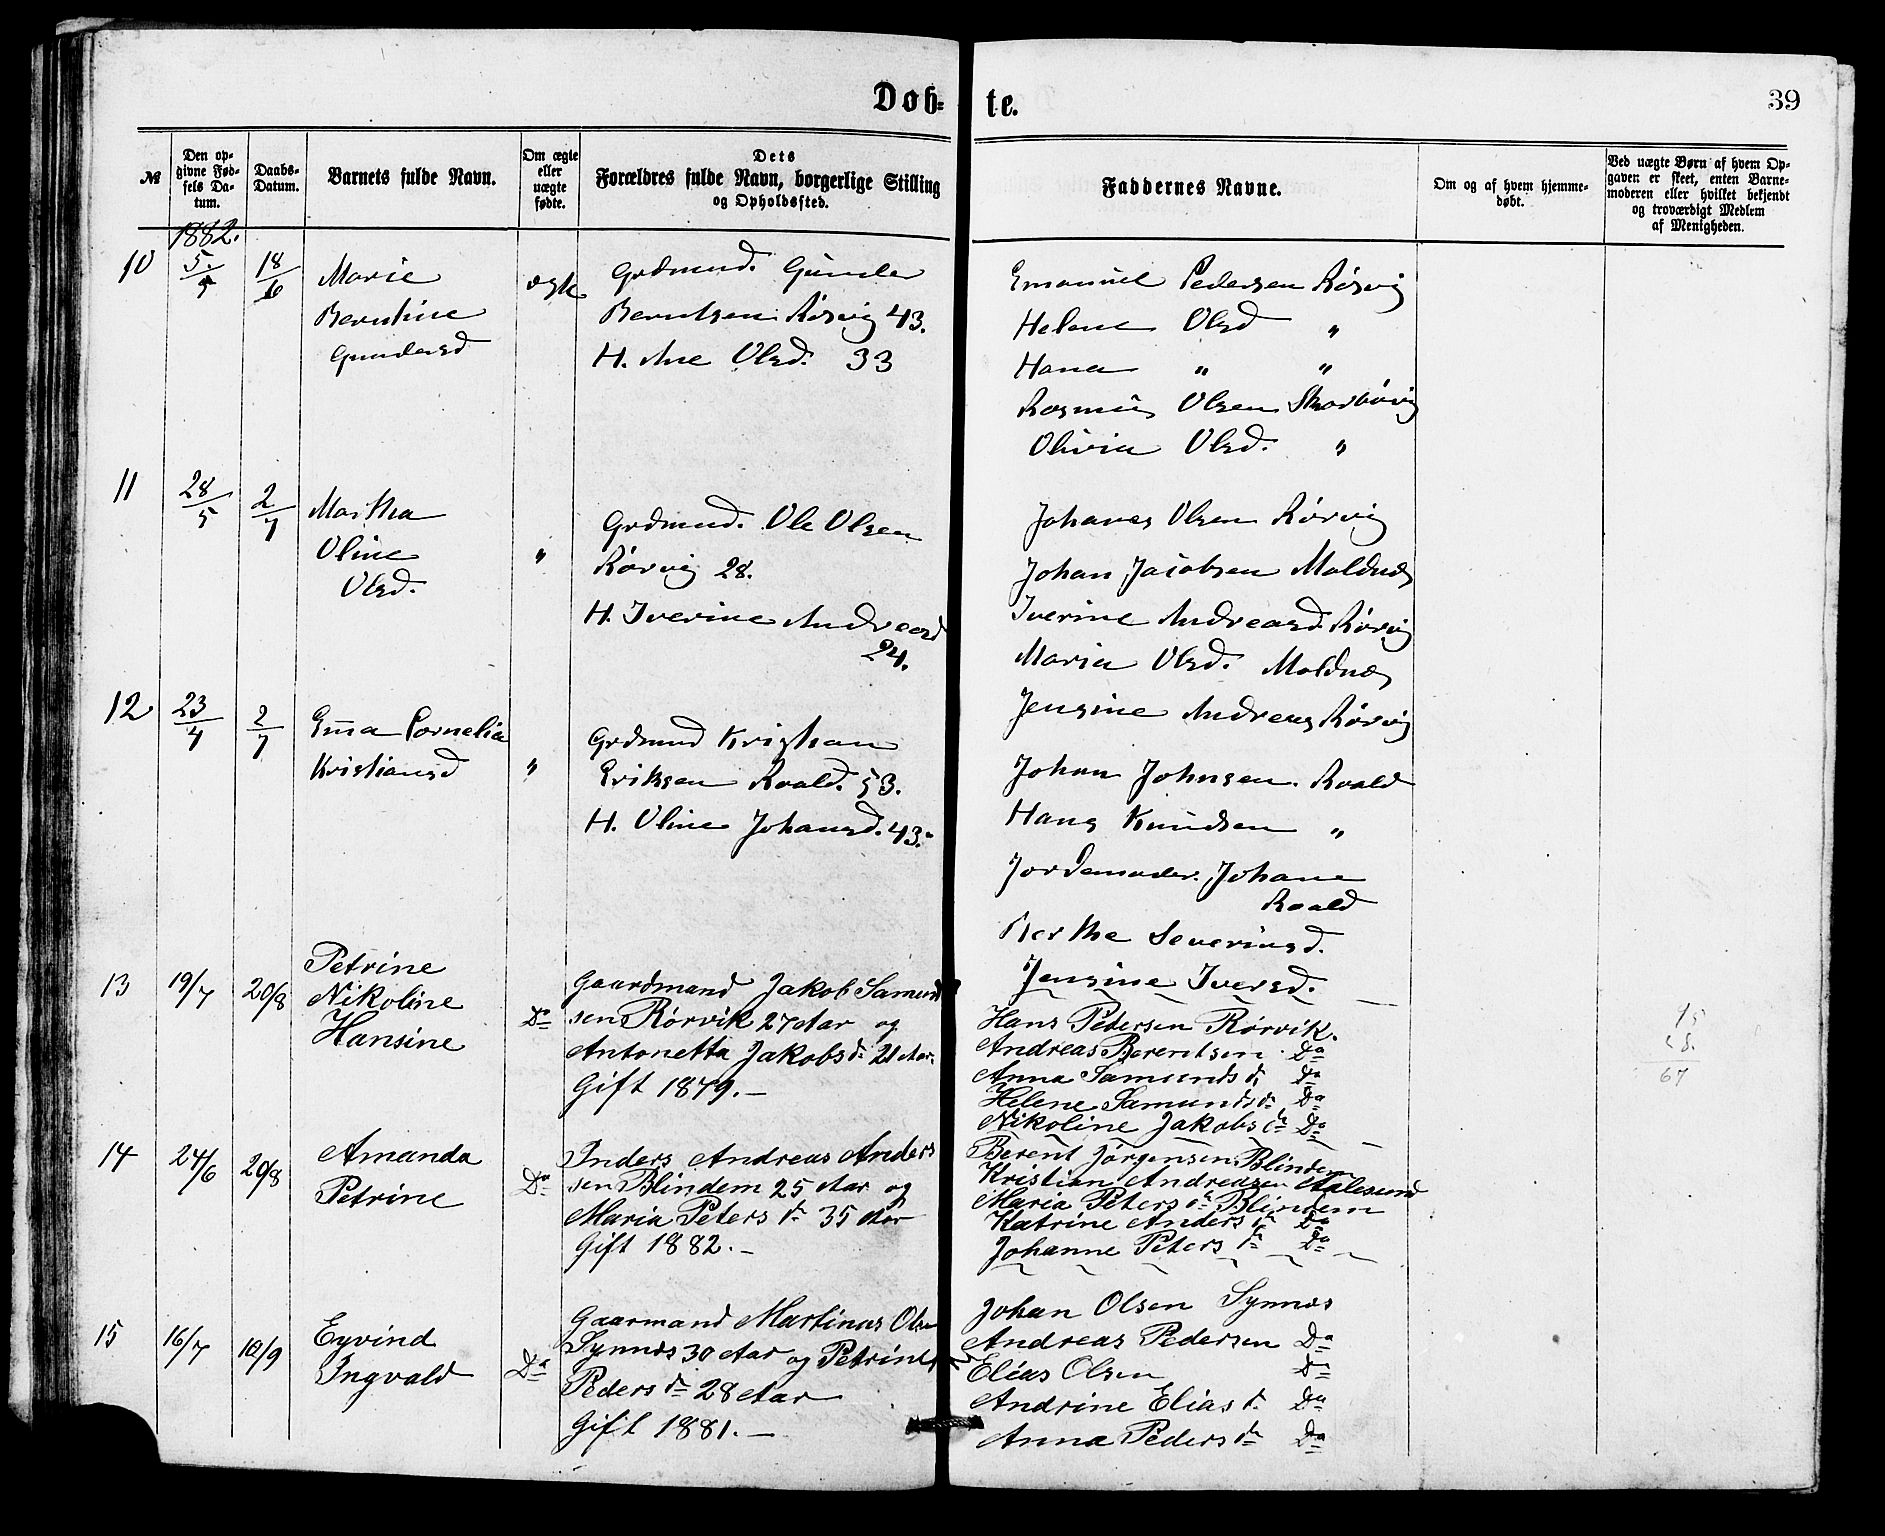 Døb-
te.
39
№
Den op-
givne Fød-
sels Da-
tum.
Daabs-
Datum.
Barnets fulde Navn.
Om ægte
eller
uægte
fødte.
Dets
Forældres fulde Navn, borgerlige Stilling
og Opholdssted.
Faddernes Navne.
Om og af hvem hjemme-
døbt.
Ved uægte Børn af hvem Op-
gaven er skeet, enten Barne-
moderen eller hvilket bekjendt
og troværdigt Medlem
af Menigheden.
1882.
10
5/5
18/6
Marie
Berntine
Gundersd
ægte
Grdmnd. Gunder
Berntsen Rørvig 43.
H. Ane Olsd. 33
Emanuel Pedersen Rørvig
Helene Olsd "
Hana " "
Rasmus Olsen
Olivia Olsd. "
11
28/5
2/7
Martha
Oline
Olsd.
"
Grdmnd. Ole Olsen
Rørvig 28.
H. Iverine Andreasd
24.
Johanes Olsen Rørvig
Johan Jacobsen Moldnæs
Iverine Andreasd. Rørvig
Maria Olsd. Moldnæs
Jensine Andreas Rørvig
12
23/4
2/7
Em̄a Cornelia
Kristiansd
"
Grdmnd Kristian
Eriksen Roald. 53.
H. Oline Johansd. 43.
Johan Johnsen. Roald
Hans Knudsen "
Jordemoder. Johane
Roald
Berthe Severinsd.
Jensine Iversd.
13
19/7
20/8
Petrine
Nikoline
Hansine
Do
Gaardmand Jakob Samund
sen Rørvik 27 Aar og
Antonetta Jakobs dr 21 Aar.
Gift 1879.—
Hans Petersen Rørvik.
Andreas Berentsen Do
Anna Samunds dr Do
Helene Samunds dr Do
Nikoline Jakobs dr Do
15
67
14
24/6
20/8
Amanda
Petrine
Do
Inders Andreas Anders
sen Blindem 25 Aar og
Maria Peters dr 35 Aar
Gift 1882.—
Berent Jørgensen Blindem
Kristian Andreasen Aalesund
Maria Peters dr Blindem
Katrine Anders dr Do
Johanne Peters dr Do
15
16/7
10/9
Eyvind
Ingvald
Do
Gaarmand Martinus Olsen
Synnæs 30 Aar og Petrine
Peders dr 28 Aar
Gift 1881.—
Johan Olsen Synnæs
Andreas Pedersen Do
Elias Olsen Do
Andrine Elias d. Do
Anna Peders dr Do